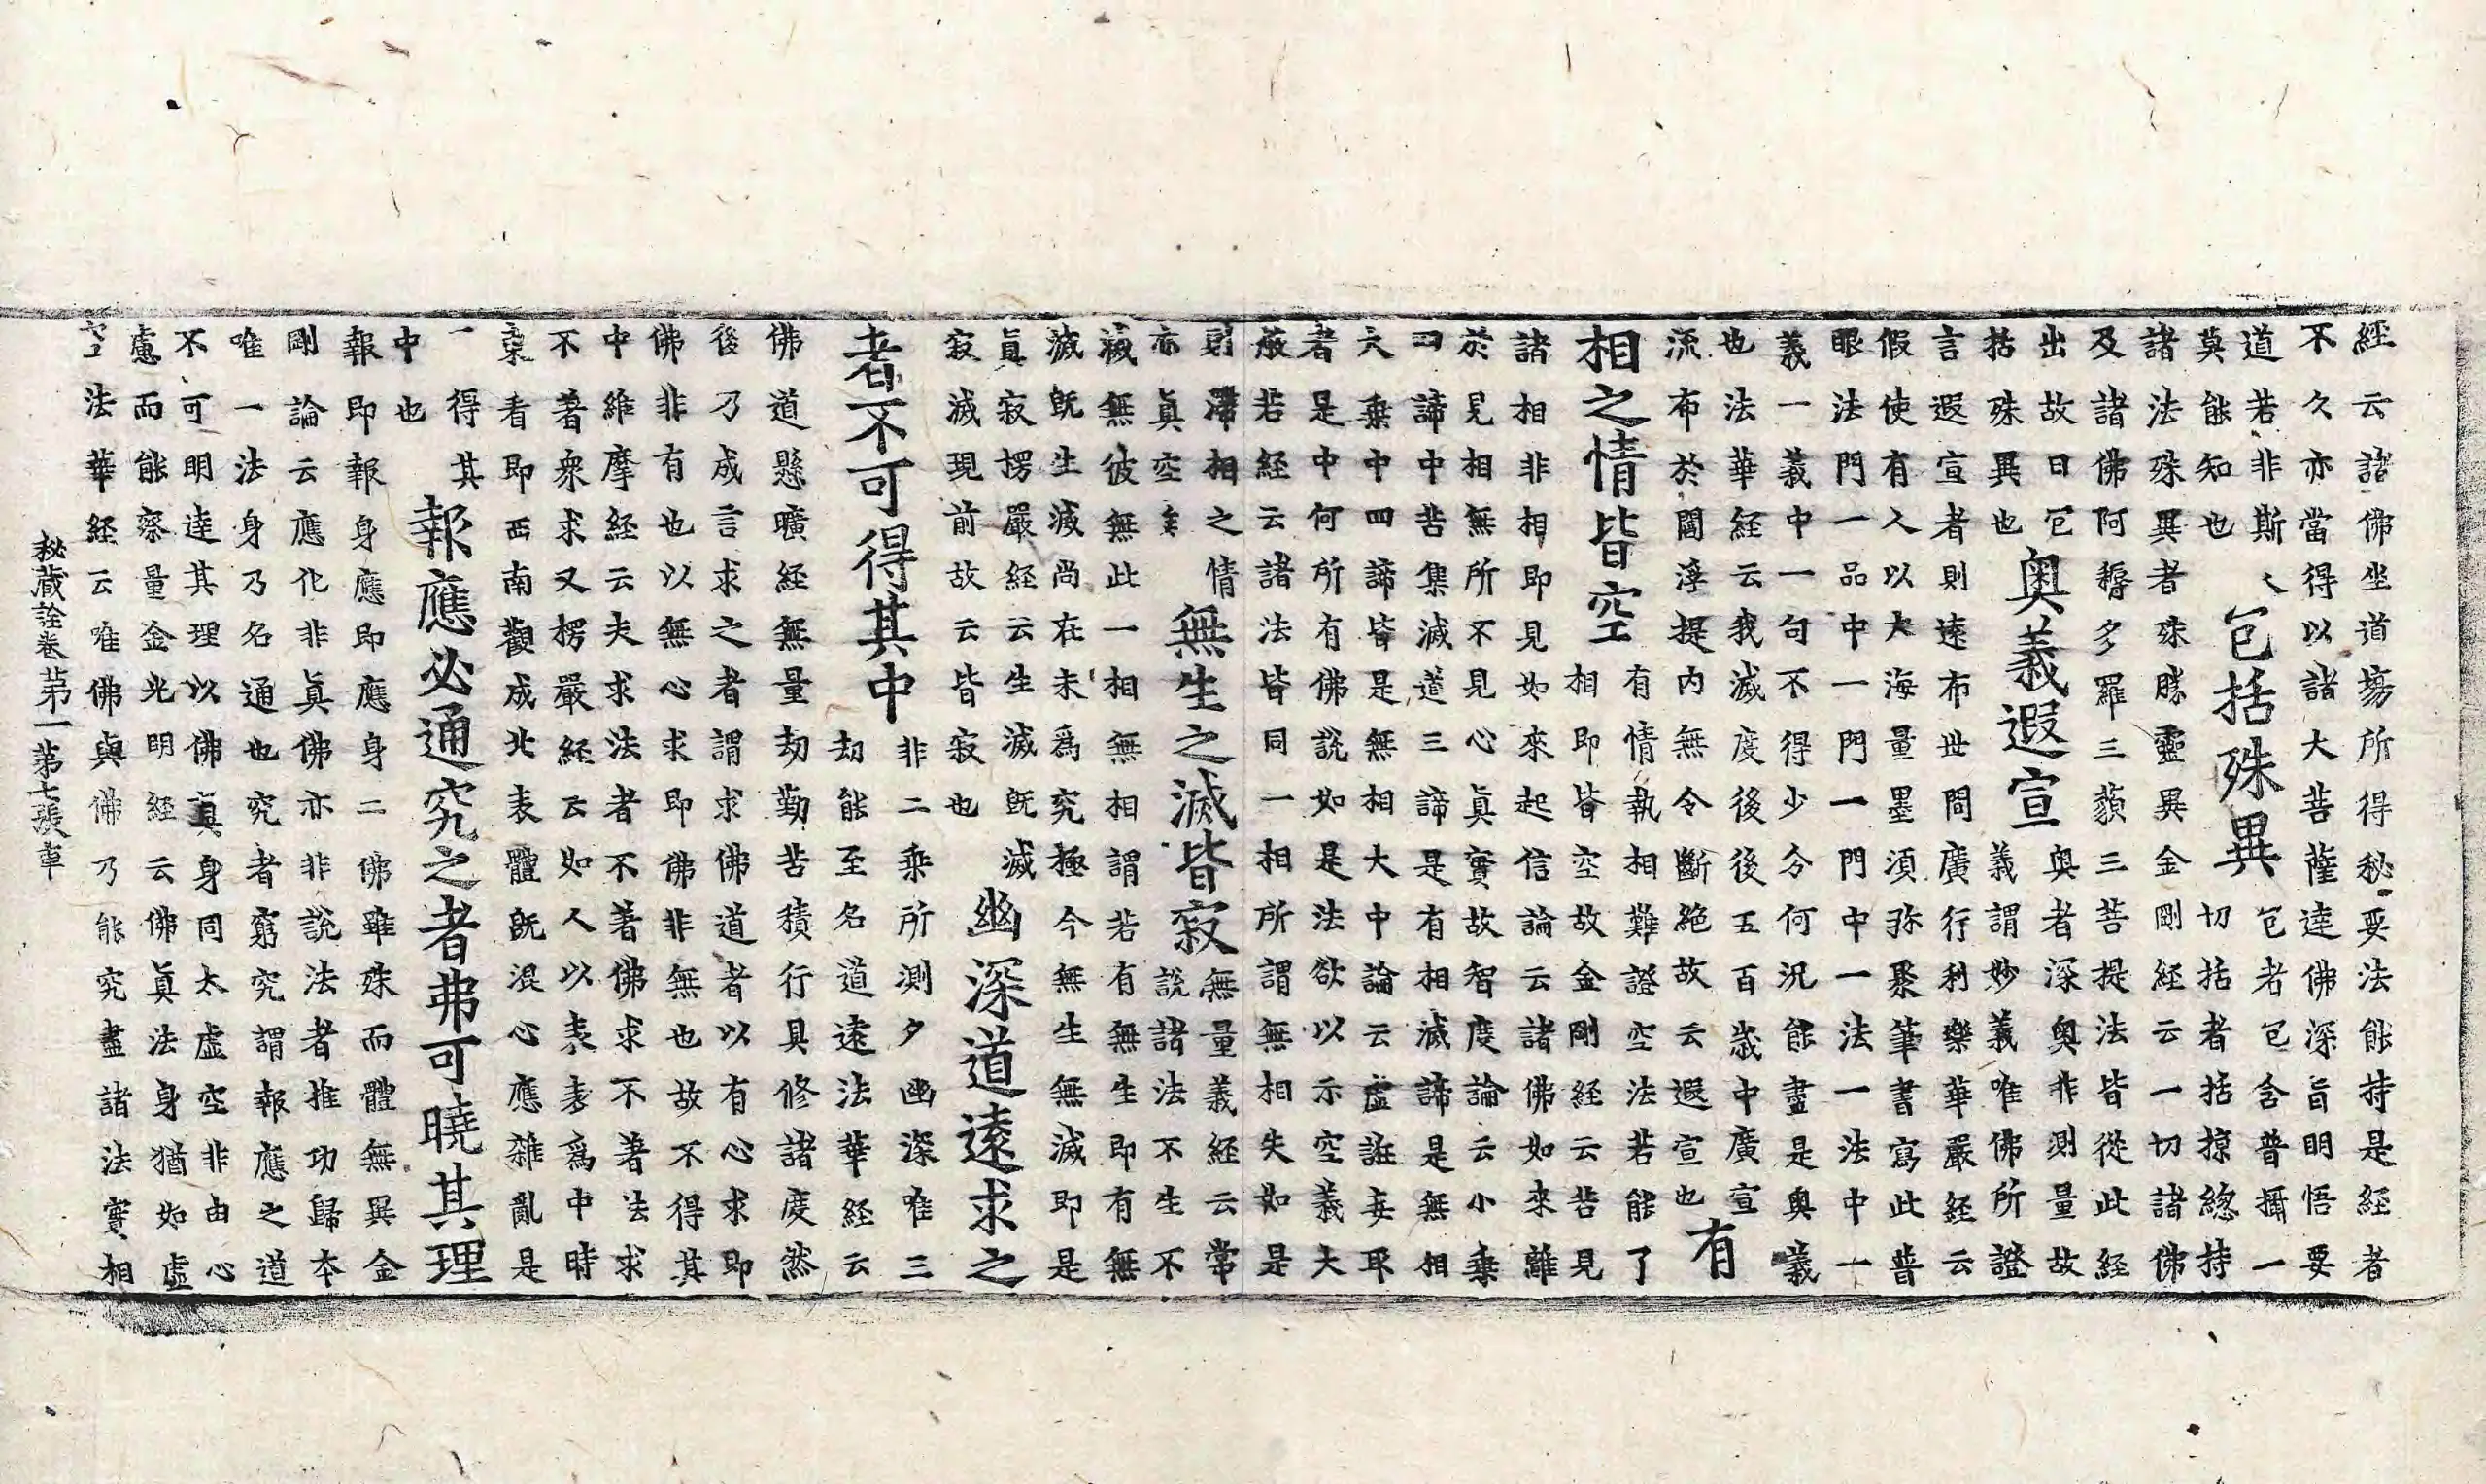 經云諸佛坐道場所得秘要法能持是經者
不久亦當得以諸大菩薩達佛深旨明悟要
道若非斯人
莫能知也
包括殊異
包者包含普攝一
切括者括捴緫持
諸法殊異者殊勝靈異金剛經云一切諸佛
及諸佛阿耨多羅三藐三菩提法皆從此經
出故曰包
括殊異也
奧義遐宣
奧者深奧非測量故
義謂妙義唯佛所證
言遐宣者則遠布世間廣行利樂華嚴經云
假使有人以大海量墨須弥聚筆書寫此普
眼法門一品中一門一門中一法一法中一
義一義中一句不得少分何況能盡是奧義
也法華經云我滅度後後五百歲中廣宣
流布於閻浮提內無令斷絕故云遐宣也
有
相之情皆空
有情執相難證空法若能了
相即皆空故金剛經云若見
諸相非相即見如來起信論云諸佛如來離
於見相無所不見心眞實故智度論云小乘
四諦中苦集滅道三諦是有相滅諦是無相
大乘中四諦皆是無相大中論云虛誑妄取
者是中何所有佛說如是法欲以示空義大
般若經云諸法皆同一相所謂無相失如是
則滯相之情
亦眞空矣
無生之滅皆寂
無量義經云常
說諸法不生不
滅無彼無此一相無相謂若有無生即有無
滅旣生滅尚在未爲究極今無生無滅即是
眞寂楞嚴經云生滅旣滅
寂滅現前故云皆寂也
幽深道遠求之
者不可得其中
非二乘所測夕幽深唯三
劫能至名道遠法華經云
佛道懸曠經無量劫勤苦積行具修諸度然
後乃成言求之者謂求佛道者以有心求即
佛非有也以無心求即佛非無也故不得其
中維摩經云夫求法者不著佛求不著法求
不著衆求又楞嚴經云如人以表表爲中時
東看即西南觀成北表體旣混心應雜亂是
一得其
中也
報應必通究之者弗可曉其理
報即報身應即應身二佛雖殊而體無異金
剛論云應化非眞佛亦非說法者推功歸本
唯一法身乃名通也究者窮究謂報應之道
不可明達其理以佛眞身同太虛空非由心
慮而能察量金光明經云佛眞法身猶如虛
空法華經云唯佛與佛乃能究盡諸法實相
秘藏詮卷第一 第七張 車